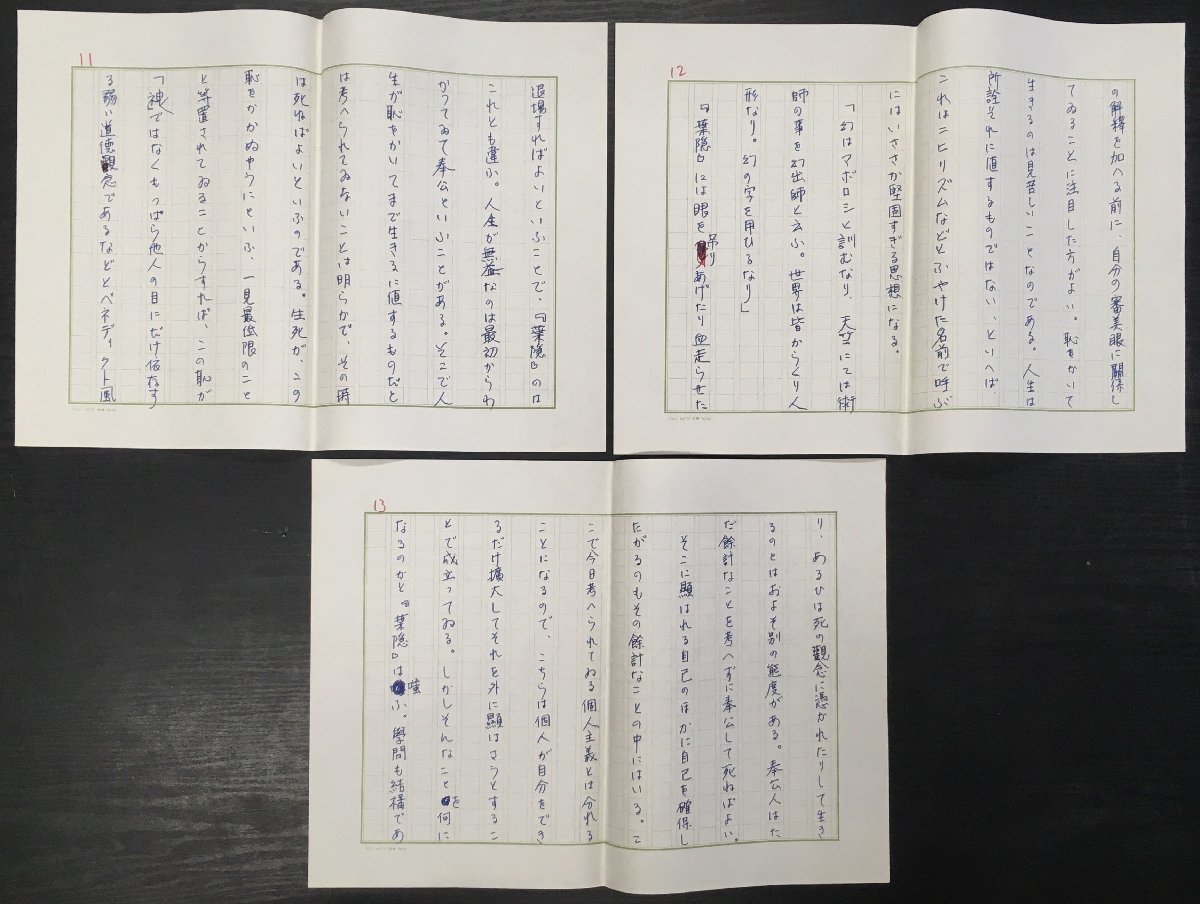 11
退場すればよいといふことで、『葉隠』のは
これとも違ふ。人生が無益なのは最初からわ
かつてゐて奉公といふことがある。そこで人
生が恥をかいてまで生きるに値するものだと
は考へられてゐないことは明らかで、その時
は死ねばよいといふのである。生死が、この
恥をかかぬやうにといふ、一見最低限のこと
と等置されてゐることからすれば、この恥が
「神」ではなくもつぱら他人の目にだけ依存す
る弱い道德觀念であるなどとベネディクト風
12
の解釋を加へる前に、自分の審美眼に關係し
てゐることに注目した方がよい。恥をかいて
生きるのは見苦しいことなのである。人生は
所詮それに値するものではない、といへば、
これはニヒリズムなどとふやけた名前で呼ぶ
にはいささか堅固すぎる思想になる。
「幻はマボロシと訓むなり、天竺にては術
師の事を幻出師と云ふ。世界は皆からくり人
形なり。幻の字を用ひるなり」
『葉隠』には眼を吊りあげたり血走らせた
13
り、あるひは死の觀念に憑かれたりして生き
るのとはおよそ別の態度がある。奉公人はた
だ餘計なことを考へずに奉公して死ねばよい。
そこに顯はれる自己のほかに自己を確保し
たがるのもその餘計なことの中にはいる。こ
こで今日考へられてゐる個人主義とは分れる
ことになるので、こちらは個人が自分をでき
るだけ擴大してそれを外に顯はさうとするこ
とで成立つてゐる。しかしそんなことを何に
なるのかと『葉隠』は嗤ふ。學問も結構であ